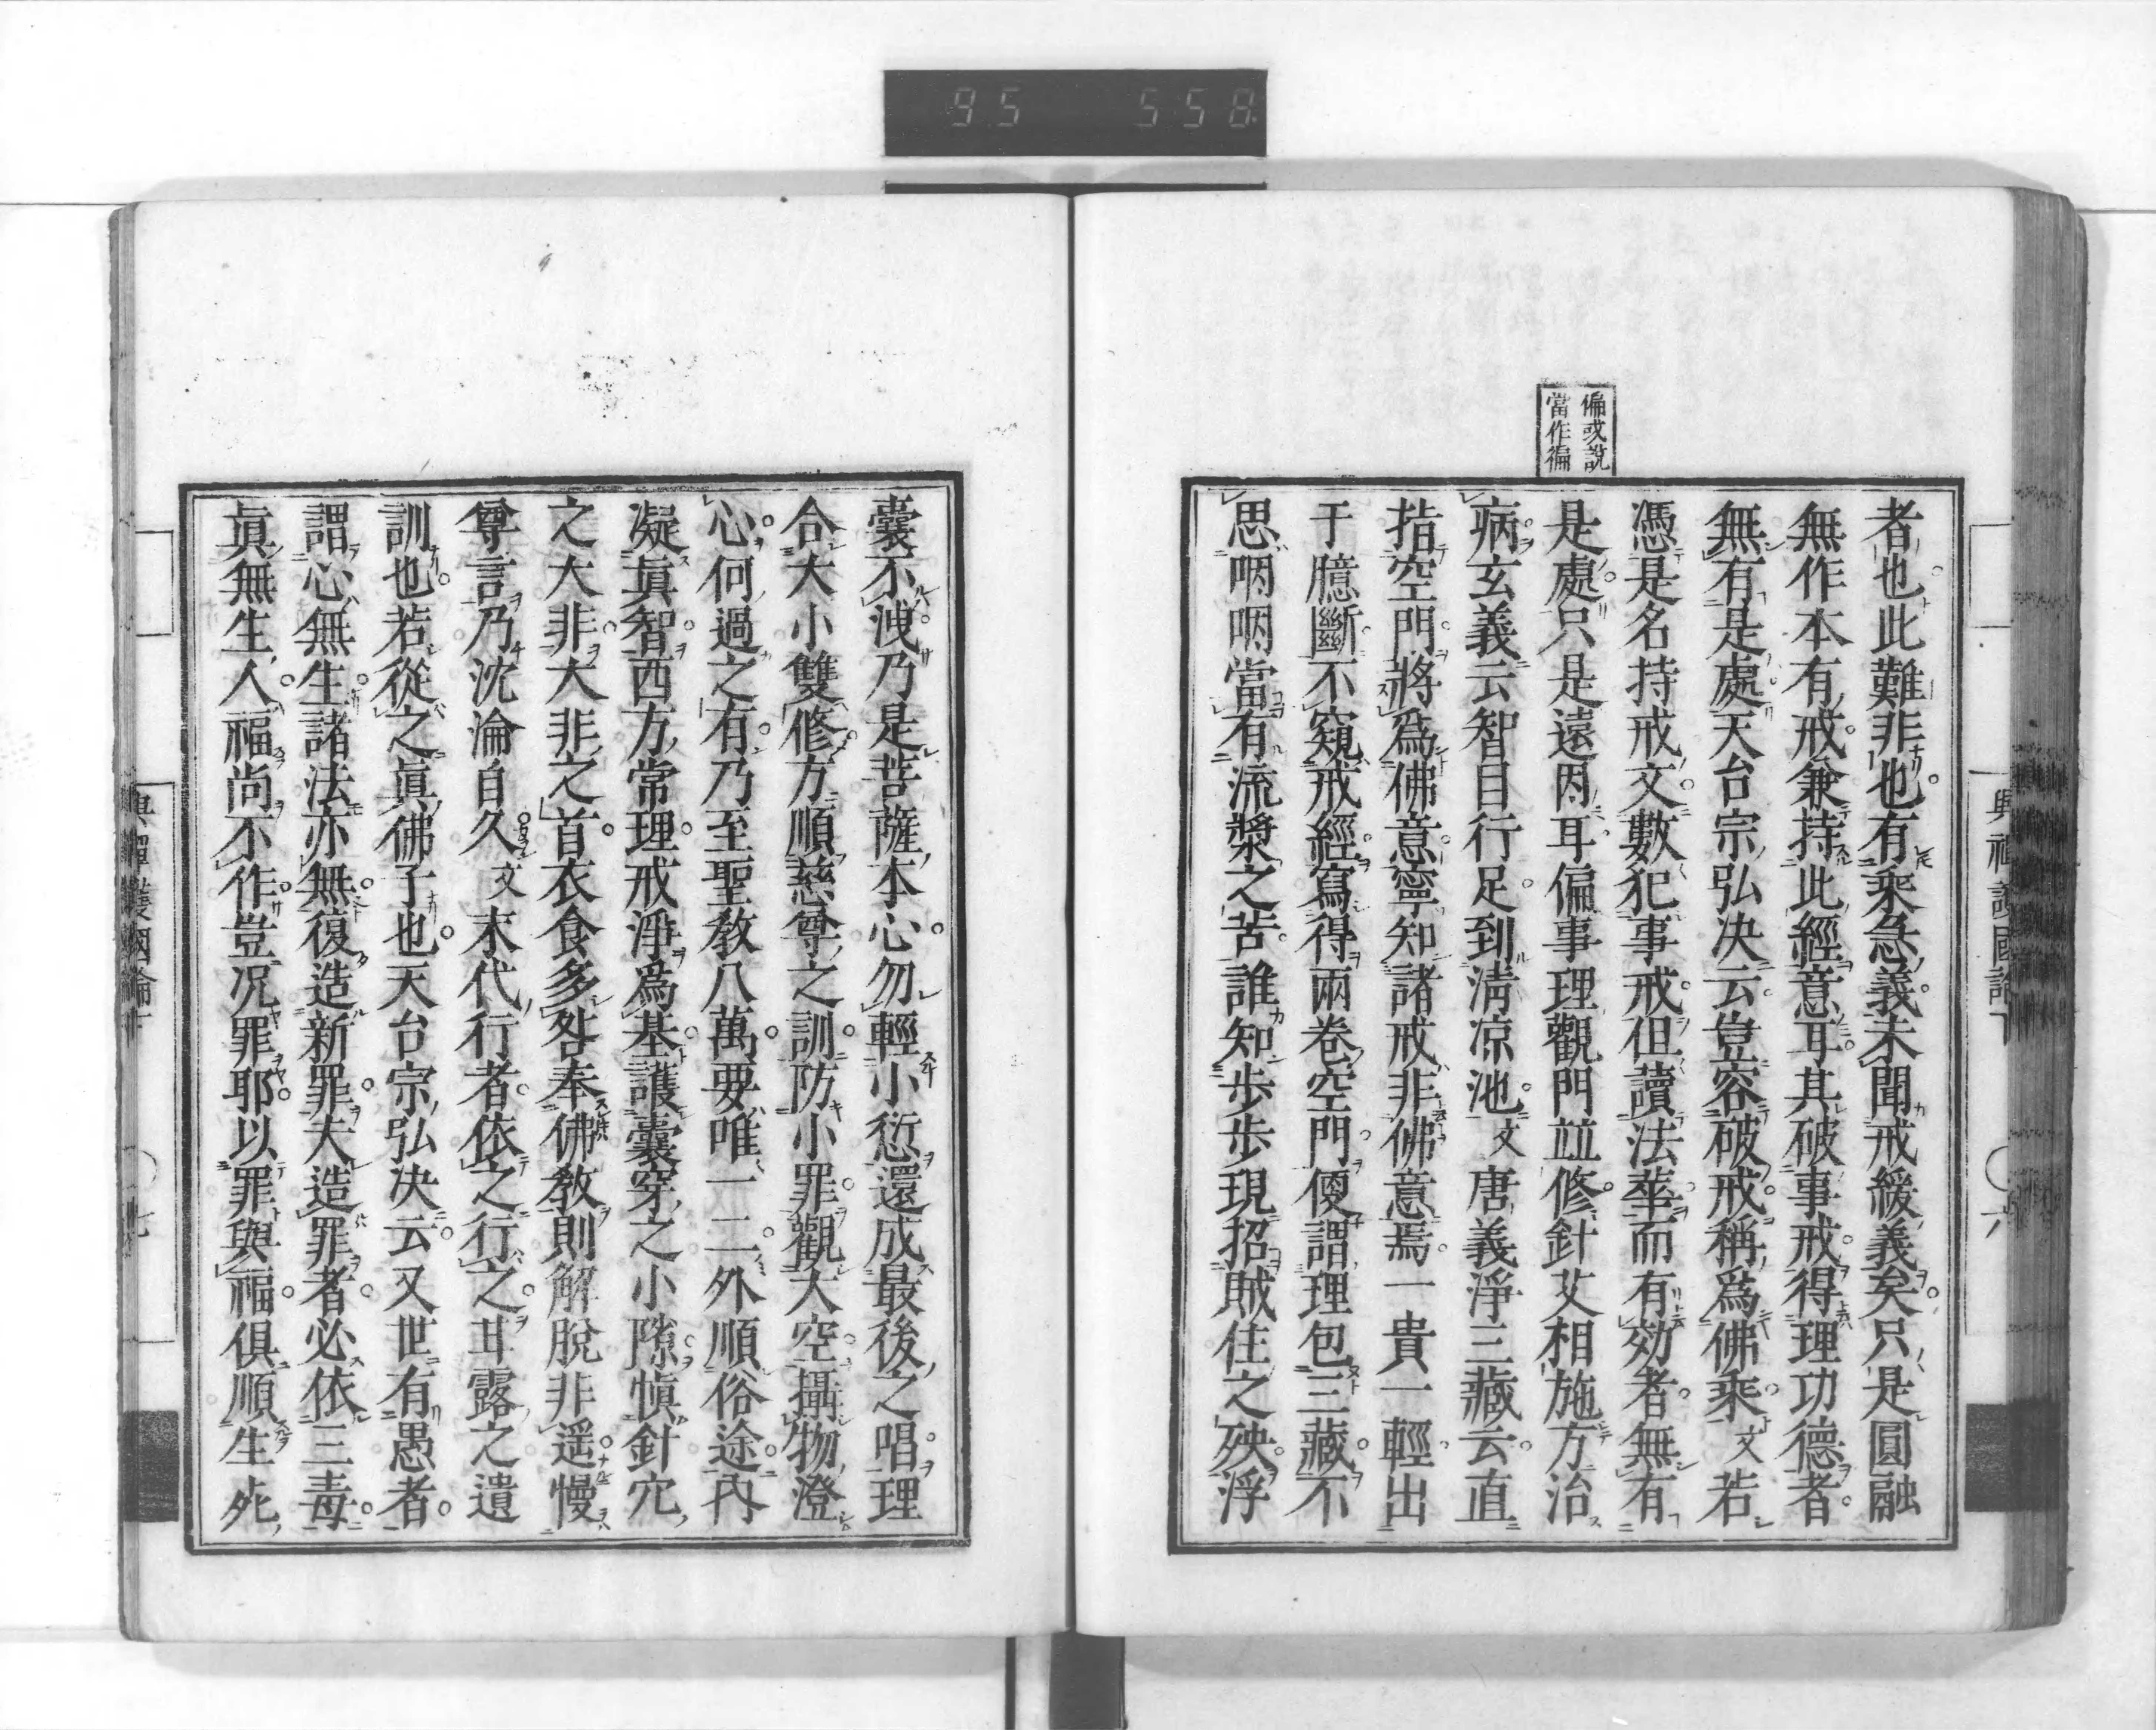 95 558
偏或說
當作徧
者也此難非也有乘急義未聞戒緩義矣只是圓融
無作本有戒兼持此經意耳其破事戒得理功德者
無有是處天台宗弘決云豈容破戒稱爲佛乘文若
憑是名持戒文數犯事戒但讀法華而有効者無有
是處只是遠因耳偏事理觀門並修針艾相施方治
病玄義云智目行足到淸凉池文唐義淨三藏云直
指空門將爲佛意寧知諸戒非佛意焉一貴一輕出
于臆斷不窺戒經寫得兩卷空門便謂理包三藏不
思咽咽當有流漿之苦誰知步步現招賊住之殃浮
興禪護國論下 六
囊不洩乃是菩薩本心勿輕小愆還成最後之唱理
合大小雙修方順慈尊之訓防小罪觀大空攝物澄
心何過之有乃至聖敎八萬要唯一二外順俗途內
凝眞智西方常理戒淨爲基護囊穿之小隙愼針穴
之大非大非之首衣食多咎奉佛敎則解脫非遥慢
尊言乃沈淪自久文末代行者依之行之甘露之遺
訓也若從之眞佛子也天台宗弘決云又世有愚者
謂心無生諸法亦無復造新罪夫造罪者必依三毒
眞無生人福尚不作豈況罪耶以罪與福俱順生死
興禪護國論下 七